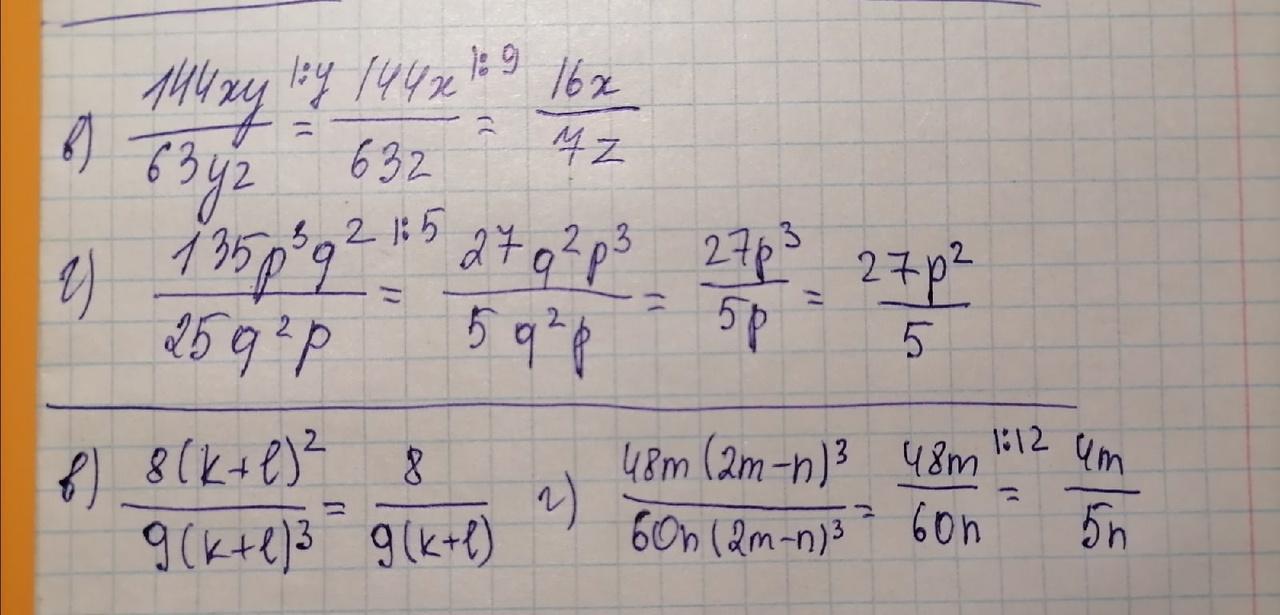 в) 144xy/63yz |:y = 144x/63z |:9 = 16x/7z
г) 135p³q²/25q²p |:5 = 27q²p³/5q²p = 27p³/5p = 27p²/5
в) 8(k+l)²/9(k+l)³ = 8/9(k+l) г) 48m(2m-n)³/60n(2m-n)³ = 48m/60n |:12 = 4m/5n